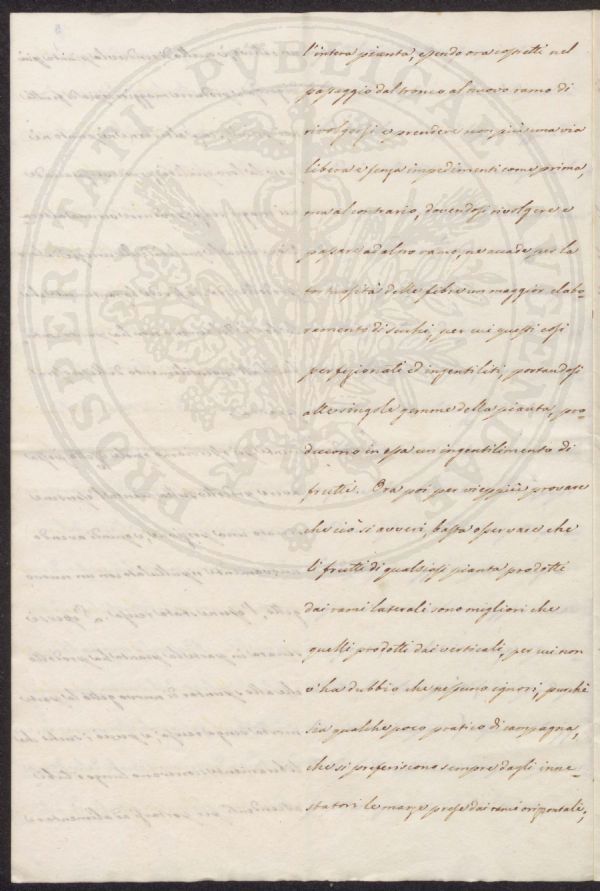 l'intera pianta, essendo ora costretti nel
passaggio dal tronco al nuovo ramo di
rivolgersi e prendere non più una via
libera e senza impedimenti come prima,
ma al contrario, dovendosi rivolgere e
passare ad altro ramo, ne accade per la
tortuosità delle fibre un maggior elabo-
ramento di succhi, per cui questi così
perfezionati ed ingentiliti, portandosi
alle singole gemme della pianta, pro-
ducono in essa un ingentilimento di
frutti. Ora poi per vieppiù provare
che ciò si avveri, basta osservare che
li frutti di qualsiasi pianta prodotti
dai rami laterali sono migliori che
quelli prodotti dai verticali, per cui non
v'ha dubbio che nessuno ignori, purchè
sia qualche poco pratico di campagna,
che si preferiscono sempre dagli inne-
statori le marze prese dai rami orizontali;
PROSPERITATI PUBLICAE AUGENDAE